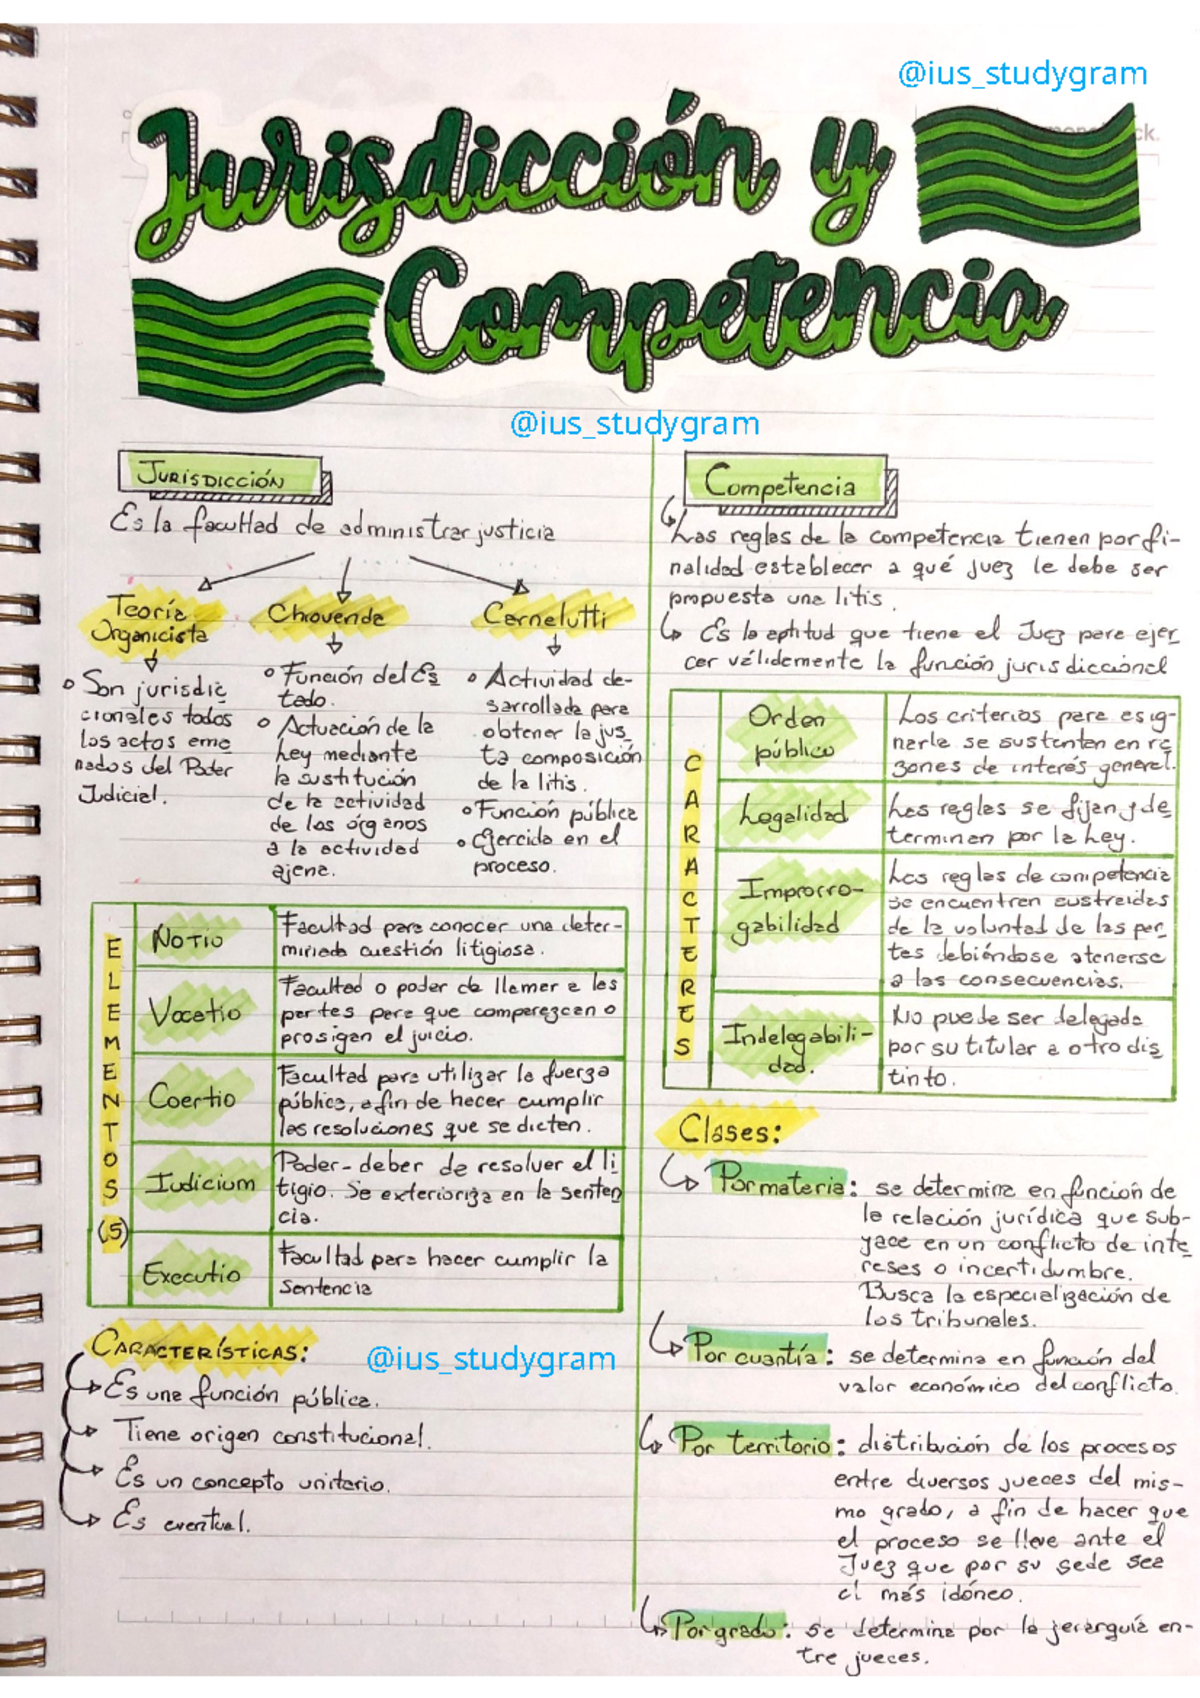 @ius_studygram
Jurisdicción y
Competencia
@ius_studygram
JURISDICCIÓN
Es la facultad de administrar justicia
Teoría
Organicista
Son jurisdic
cionales todos
los actos ema
nados del Poder
Judicial.
Chiovenda
Función del Es
tado.
Actuación de la
Ley mediante
la sustitución
de la actividad
de los órganos
a la actividad
ajena.
Carnelutti
Actividad de-
sarrollada para
obtener la jus
ta composición
de la litis.
Función pública
Ejercida en el
proceso.
ELEMENTOS (5)
NOTIO
Facultad para conocer una deter-
minada cuestión litigiosa.
Vocatio
Facultad o poder de llamar a las
partes para que comparezcan o
prosigan el juicio.
Coertio
Facultad para utilizar la fuerza
pública, a fin de hacer cumplir
las resoluciones que se dicten.
Iudicium
Poder-deber de resolver el li
tigio. Se exterioriza en la senten
cia.
Executio
Facultad para hacer cumplir la
sentencia
CARACTERÍSTICAS:
@ius_studygram
Es una función pública.
Tiene origen constitucional.
Es un concepto unitario.
Es eventual.
Competencia
Las reglas de la competencia tienen por fi-
nalidad establecer a qué juez le debe ser
propuesta una litis.
Es la aptitud que tiene el Juez para ejer
cer válidamente la función jurisdiccional
CARACTERES
Orden
público
Los criterios para asig-
narla se sustentan en ra
zones de interés general.
Legalidad
Las reglas se fijan y de
terminan por la Ley.
Improrro-
gabilidad
Las reglas de competencia
se encuentran sustraidas
de la voluntad de las par
tes debiéndose atenerse
a las consecuencias.
Indelegabili-
dad.
No puede ser delegada
por su titular a otro dis
tinto.
Clases:
Por materia: se determina en función de
la relación jurídica que sub-
yace en un conflicto de inte
reses o incertidumbre.
Busca la especialización de
los tribunales.
Por cuantía: se determina en función del
valor económico del conflicto.
Por territorio: distribución de los procesos
entre diversos jueces del mis-
mo grado, a fin de hacer que
el proceso se lleve ante el
Juez que por su sede sea
el más idóneo.
Por grado: se determina por la jerarquía en-
tre jueces.